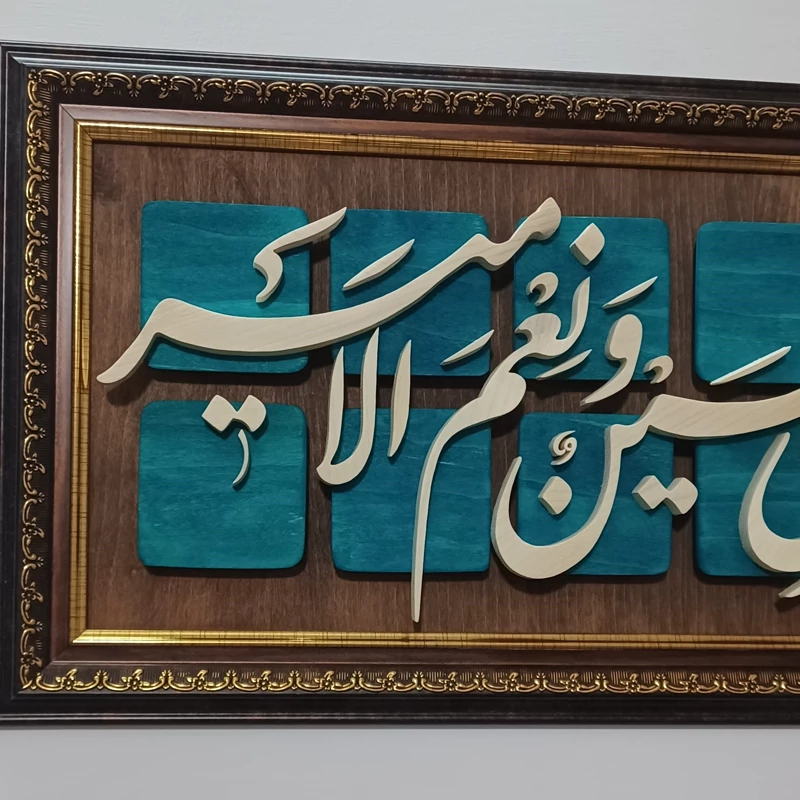 سین ونعم الامیر